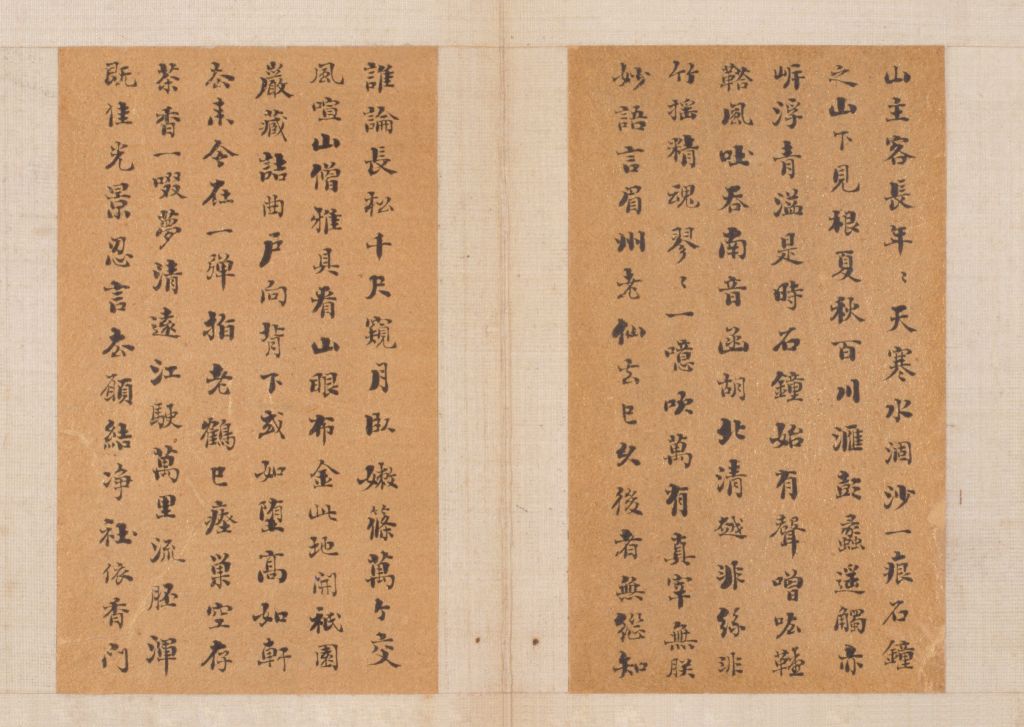 山主客長年〻天寒水涸沙一痕石鐘
之山下見根夏秋百川滙彭蠡遥觸亦
岸浮青溢是時石鐘始有聲噌吰鞺
鞳風吐吞南音函胡北清越非絲非
竹摇精魂翏〻一噫吹萬有真宰無朕
妙語言眉州老仙去已久後者無從知
誰論長松千尺窺月臼嫩篠萬个交
風喧山僧雅具看山眼布金此地開祇園
嚴藏詰曲戶向背下或如墮高如軒
去來今在一彈指老鶴已瘞巢空存
茶香一啜夢清遠江駛萬里流胚渾
既佳光景忍言去願結净社依香門